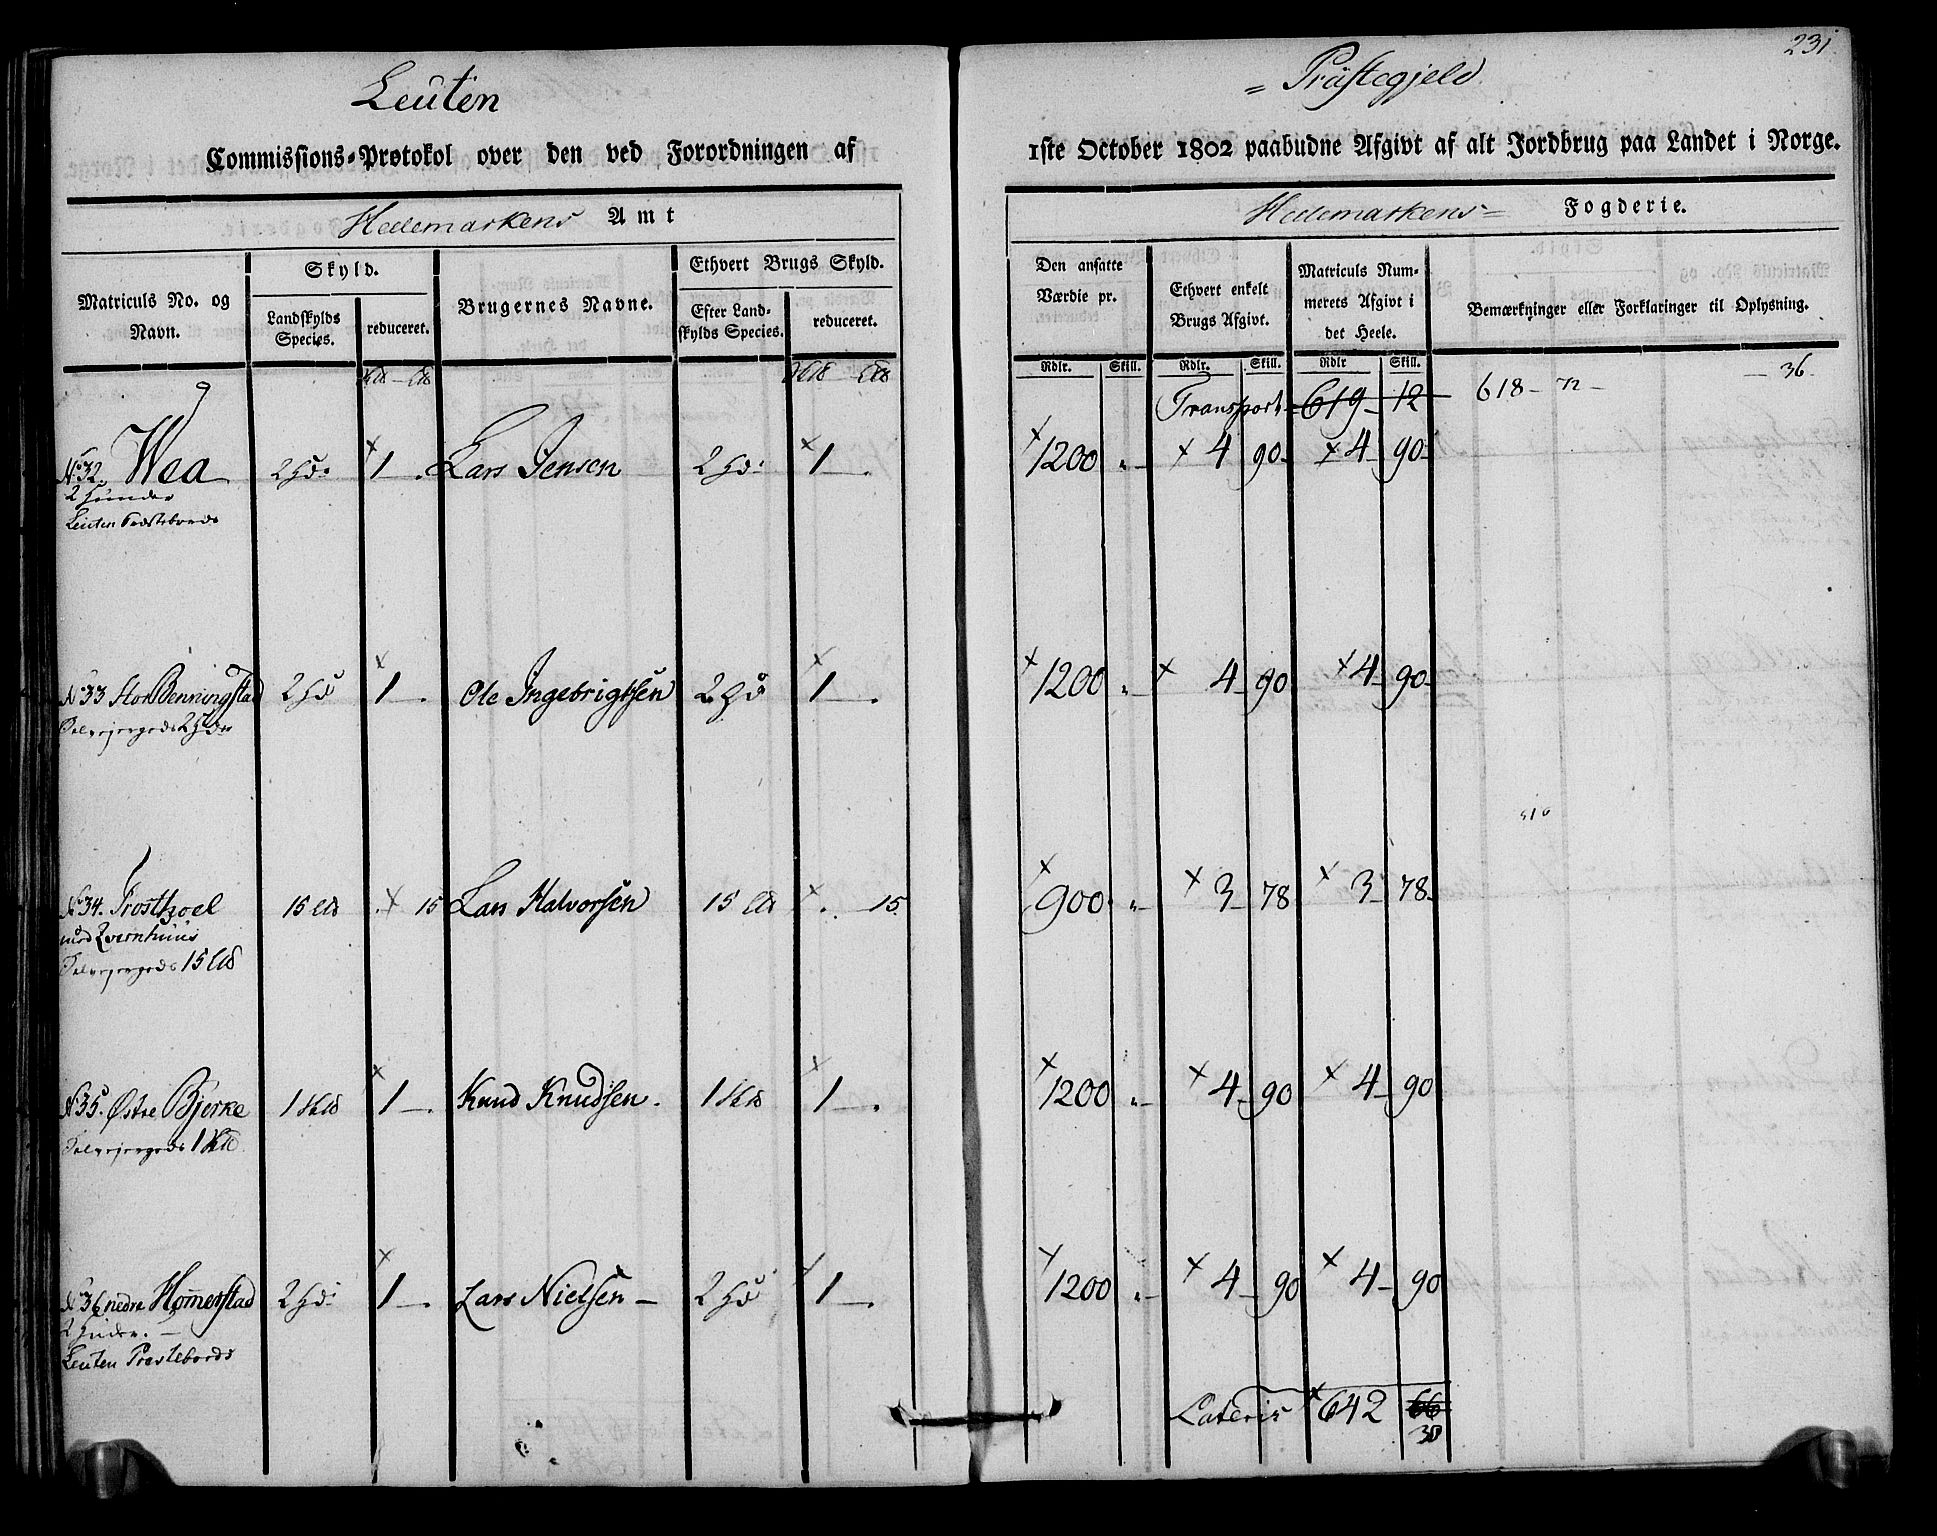 231
Leuten = Præstegjeld
Commissions-Protokol over den ved Forordningen af 1ste October 1802 paabudne Afgivt af alt Jordbrug paa Landet i Norge.
Hedemarkens Amt
Hedemarkens= Fogderie.
Matriculs No. og Navn.
Skyld.
Landskylds Species.
reduceret.
Brugernes Navne.
Ethvert Brugs Skyld.
Efter Landskylds Species.
reduceret.
Den ansatte Værdie pr.
Ethvert enkelt Brugs Afgivt.
Matriculs Nummerets Afgivt i det Heele.
Bemærkninger eller Forklaringer til Oplysning.
Rdlr. Skill. Rdlr. Skill. Rdlr Skill.
Transport 619 12 618 72 36
No 32. Wea 2 Hd: 1 Lars Jensen 2 Hd: 1 1200 4 90 4 90
2 Huder
Leuten Præstebords
No 33 Stor Benningstad 2 Hd 1 Ole Ingebrigtsen 2 Hd 1 1200 4 90 4 90
Selvejergods 2 Hder
No 34. Frosthoel 15 15 Lars Halvorsen 15 15 900 3 78 3 78
med Qvernhuus
Selvejergods 15
No 35. Østre Bjerke 1 1 Knud Knudsen. 1 1 1200 4 90 4 90
Selvejergods 1
No 36 nedre Homerstad 2 Hd: 1 Lars Nielsen 2 Hd 1 1200 4 90 4 90
2 Huder.
Leuten Præstebords
Lateris 642 66
30